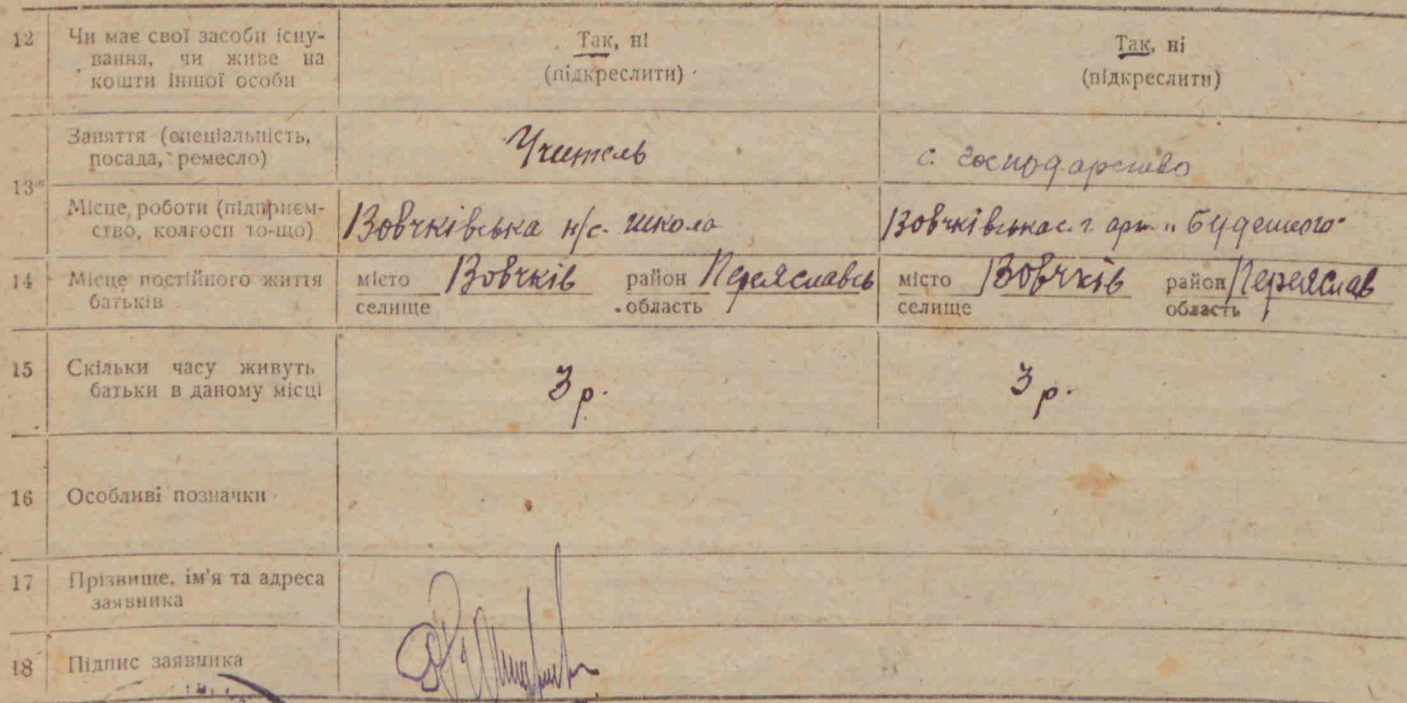 12 Чи має свої засоби існу-
вання, чи живе на
кошти іншої особи
Так, ні
(підкреслити)
Так, ні
(підкреслити)
13
Заняття (спеціальність,
посада, ремесло)
Учитель
с. господарство
Місце роботи (підприєм-
ство, колгосп то-що)
Вовчківська н/с. школа
Вовчківська с. г. арт. „Будешого"
14 Місце постійного життя
батьків
місто Вовчків район Переяславсь
селище область
місто Вовчків район Переяслав
селище область
15 Скільки часу живуть
батьки в даному місці
3 р.
3 р.
16 Особливі позначки
17 Прізвище, ім'я та адреса
заявника
18 Підпис заявника